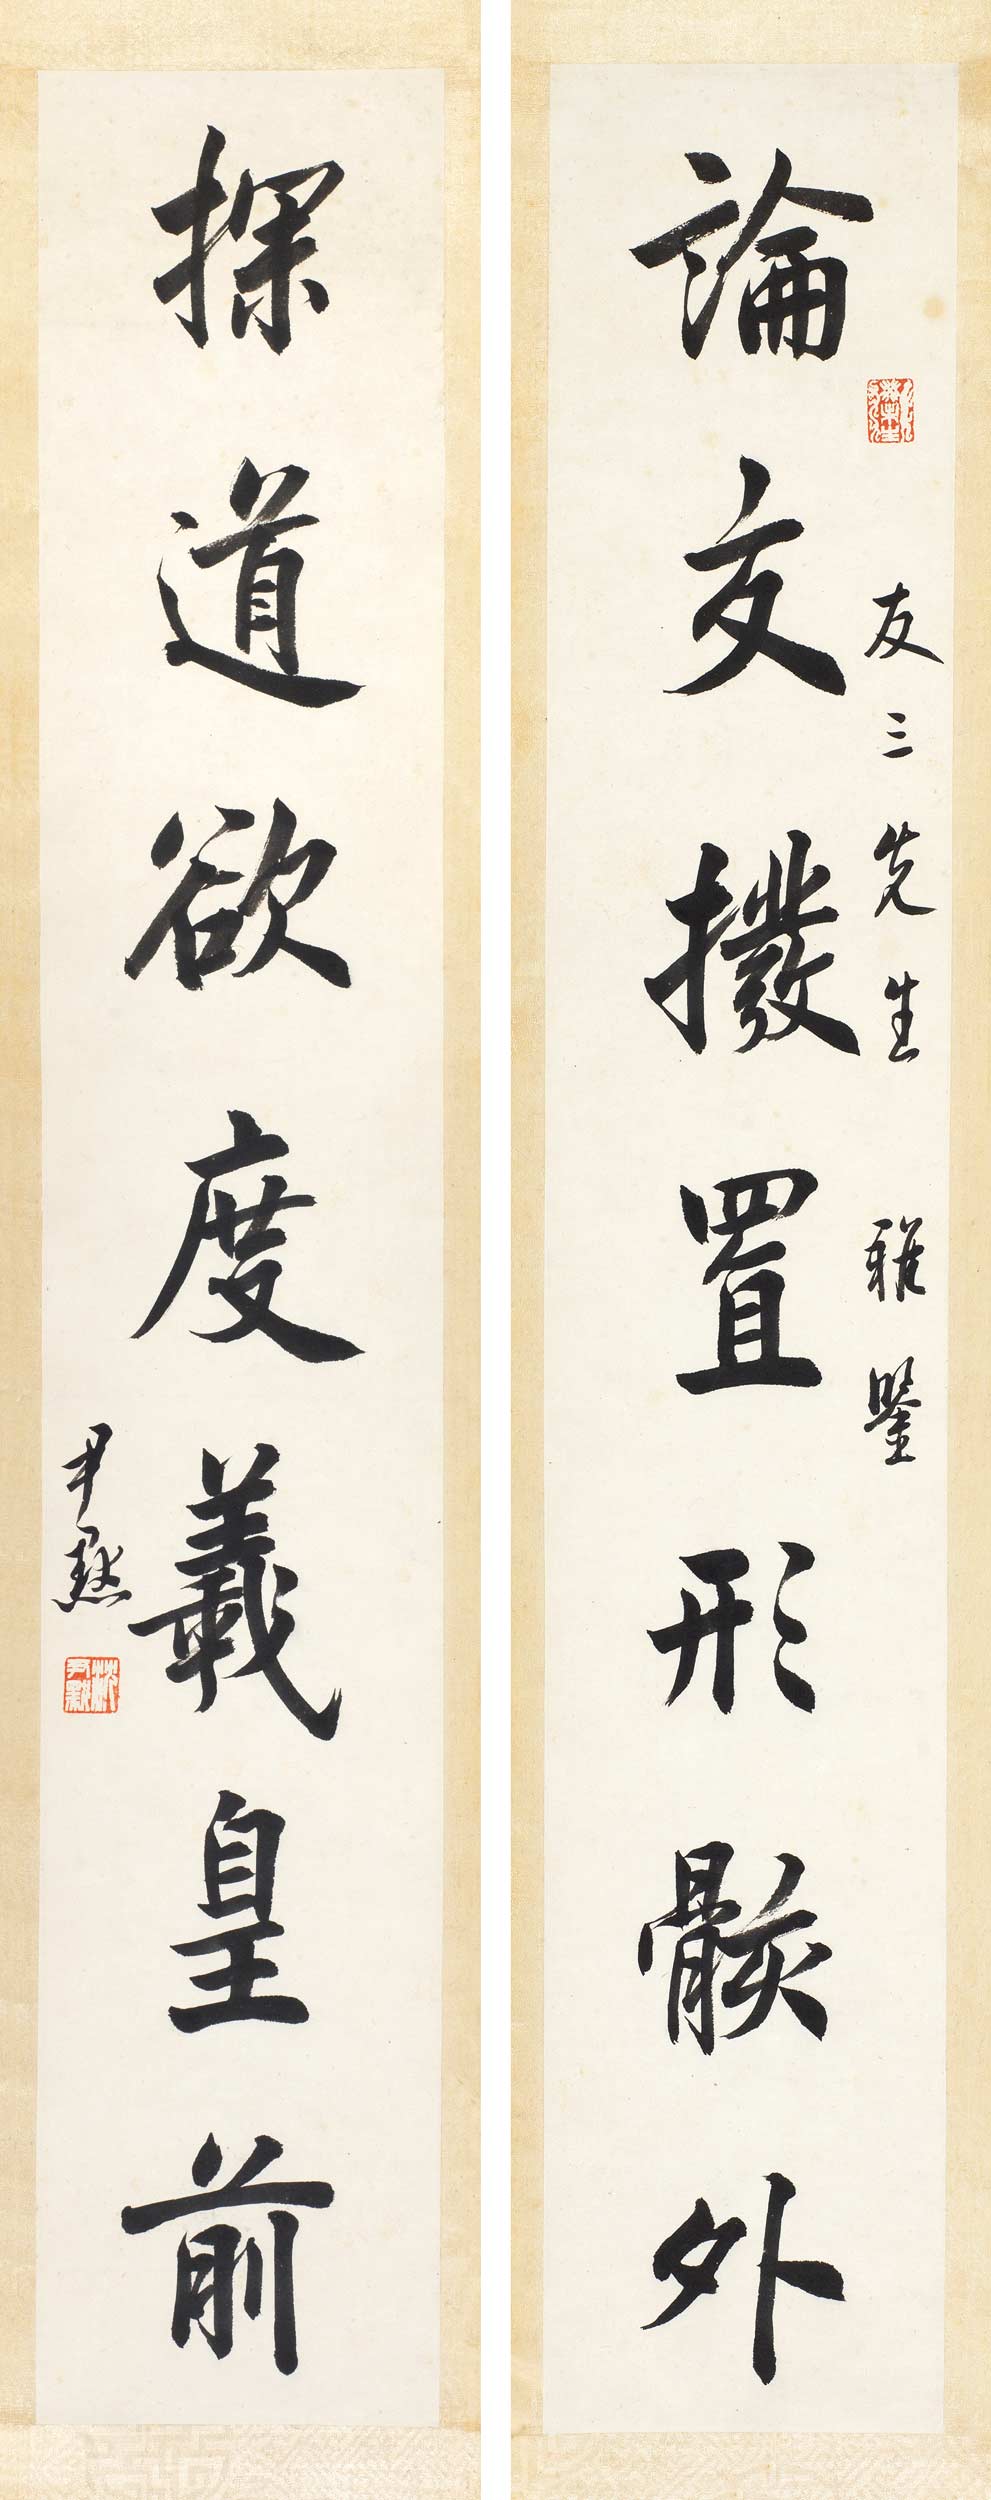 論文撥置形骸外
友三先生 雅鑒
探道欲度羲皇前
尹默
沈尹默